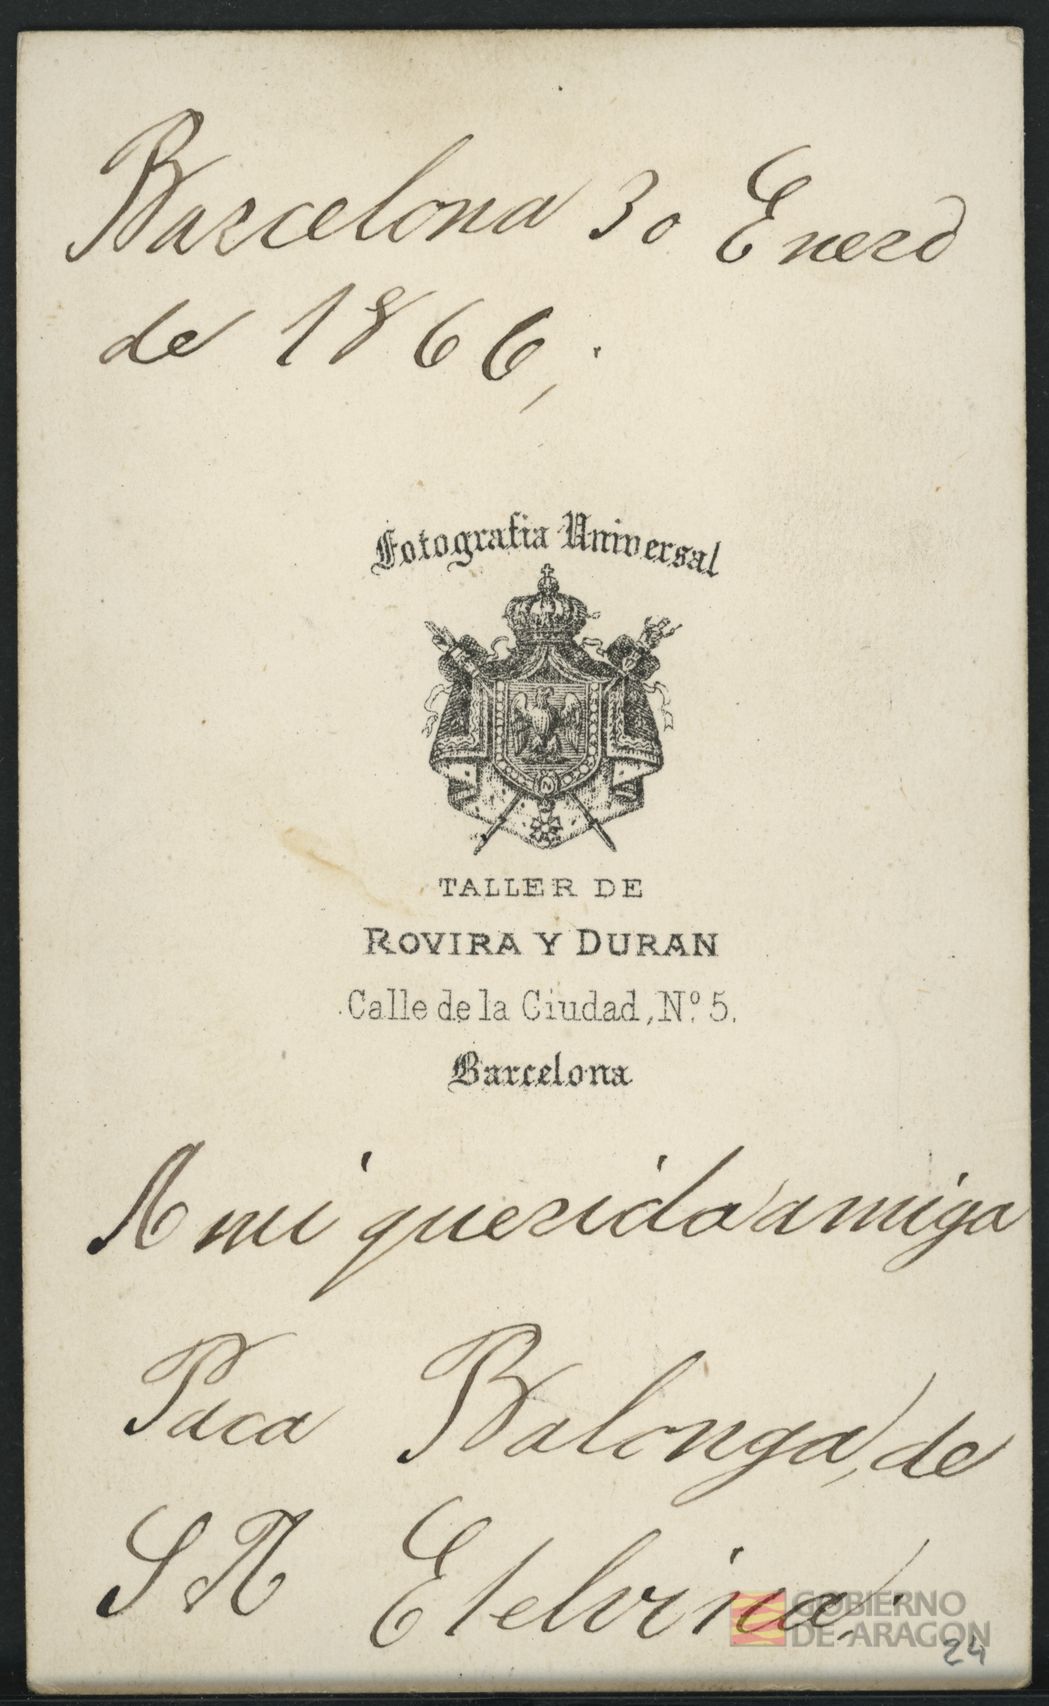 Barcelona 30 Enero
de 1866,.
Fotografia Universal
N
TALLER DE
ROVIRA Y DURAN
Calle de la Ciudad, Nº 5.
Barcelona
A mi querida amiga
Paca Balonga, de
S A Etelvina.
GOBIERNO
DE ARAGON
24